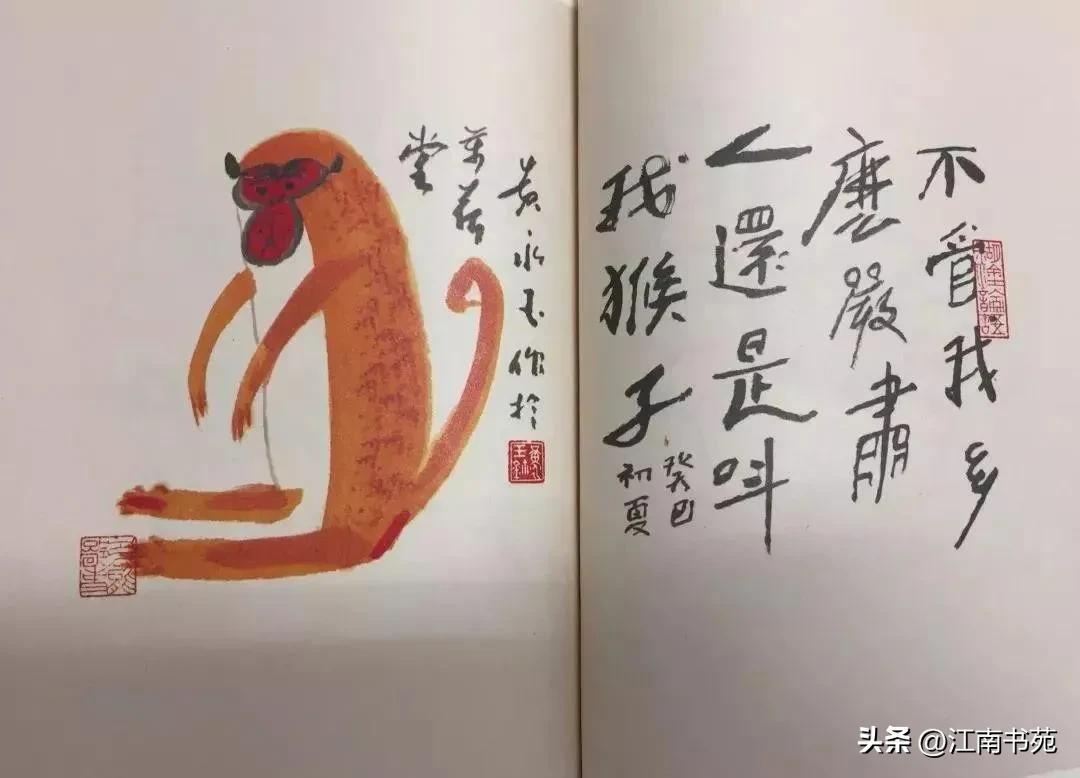 不管我多
麼嚴肅
人還是叫
我猴子
癸巳
初夏
黄永玉作於
萬荷
堂
头条 @江南书苑